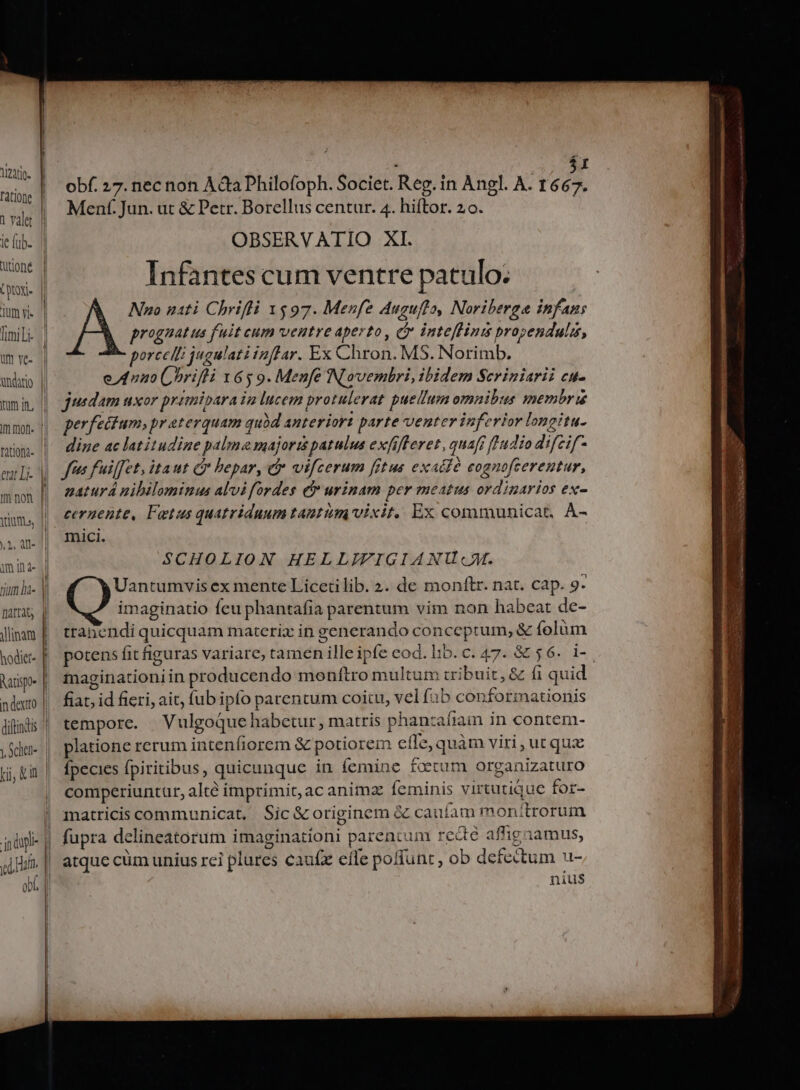 51
obſ. 27. nec non Acta Philoſoph. Societ. Reg. in Angl. A. 1667.
Menſ. Jun. ut & Petr. Borellus centur. 4. hiſtor. 20.
OBSERVATIO XI.
Infantes cum ventre patulo.
ANno nati Chriſti 1597. Menſe Auguſto, Noribergæ infans
prognatus fuit cum ventre aperto, & inteſtinis propendulis,
porcelli jugulati inſtar. Ex Chron. MS. Norimb.
Anno Chriſti 1659. Menſe Novembri, ibidem Scriniarii cu-
jusdam uxor primipara in lucem protulerat puellum omnibus membris
perfectum, præterquam quòd anteriori parte venter inferior longitu-
dine ac latitudine palmæ majoris patulus exſiſteret, quaſi ſtudio diſciſ-
ſus fuiſſet, ita ut & hepar, & viſcerum ſitus exactè cognoſcerentur,
naturâ nihilominus alvi ſordes & urinam per meatus ordinarios ex-
cernente. Fœtus quatriduum tantùm vixit. Ex communicat. A-
mici.
SCHOLION HELLWIGIANUM.
QUantumvis ex mente Liceti lib. 2. de monſtr. nat. cap. 9.
imaginatio ſeu phantaſia parentum vim non habeat de-
trahendi quicquam materiæ in generando conceptum, & ſolùm
potens ſit figuras variare, tamen ille ipſe eod. lib. c. 47. & 56. i-
maginationi in producendo monſtro multum tribuit, & ſi quid
fiat, id fieri, ait, ſub ipſo parentum coitu, vel ſub conformationis
tempore. Vulgoque habetur, matris phantaſiam in contem-
platione rerum intenſiorem & potiorem eſſe, quàm viri, ut quæ
ſpecies ſpiritibus, quicunque in ſemine fœtum organizaturo
comperiuntur, altè imprimit, ac animæ ſeminis virtutique for-
matricis communicat. Sic & originem & cauſam monſtrorum
ſupra delineatorum imaginationi parentum rectè aſſignamus,
atque cùm unius rei plures cauſæ eſſe poſſunt, ob defectum u-
nius